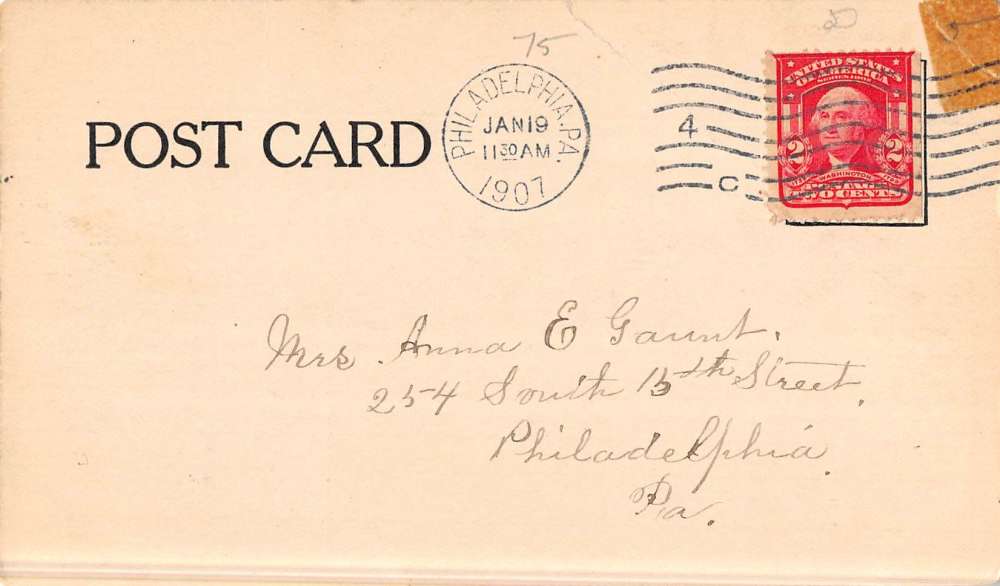 75
POST CARD
PHILADELPHIA.PA.
JAN 19
11 30 AM
1907
4
C
UNITED STATES
OF AMERICA
SERIES 1902
2 2
WASHINGTON
TWO CENTS
Mrs. Anna E Gaunt.
254 South 15th Street.
Philadelphia.
Pa.